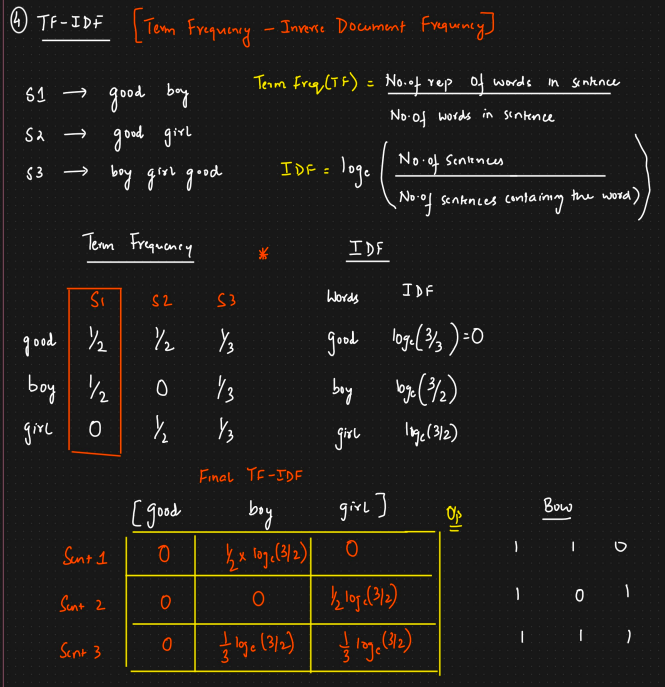 ④ TF-IDF [Term Frequency - Inverse Document Frequency]
S1 → good boy
S2 → good girl
S3 → boy girl good
Term Freq(TF) = No.of rep of words in sentence
No.of words in sentence
IDF = logₑ ( No.of sentences
No.of sentences containing the word)
Term Frequency * IDF
S1 S2 S3 Words IDF
good 1/2 1/2 1/3 good logₑ(3/3)=0
boy 1/2 0 1/3 boy logₑ(3/2)
girl 0 1/2 1/3 girl logₑ(3/2)
Final TF-IDF
[good boy girl] O/p BOW
Sent 1 0 1/2 × logₑ(3/2) 0 1 1 0
Sent 2 0 0 1/2 logₑ(3/2) 1 0 1
Sent 3 0 1/3 logₑ(3/2) 1/3 logₑ(3/2) 1 1 1